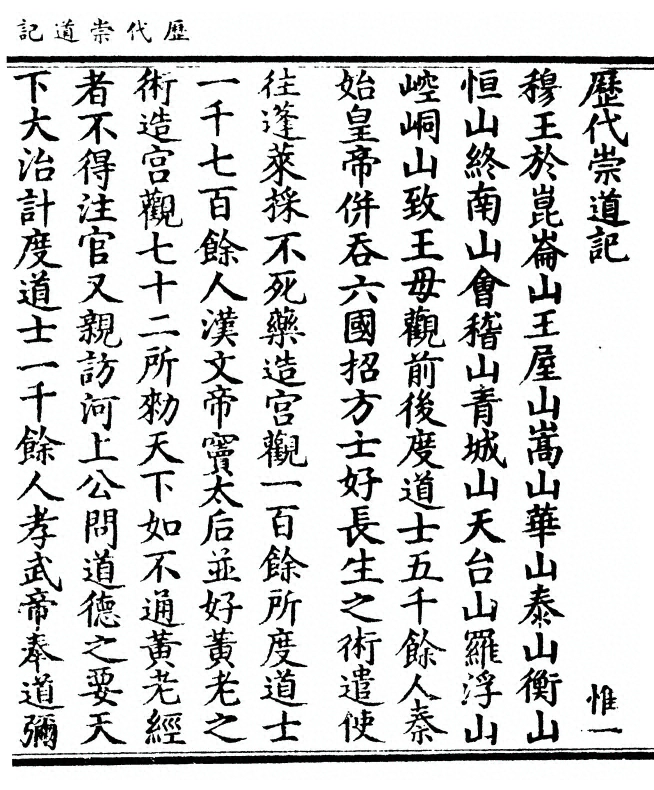 歷代崇道記
歷代崇道記 惟一
穆王於崑崙山王屋山嵩山華山泰山衡山
恒山終南山會稽山青城山天台山羅浮山
崆峒山致王母觀前後度道士五千餘人秦
始皇帝併吞六國招方士好長生之術遣使
往蓬萊採不死藥造宮觀一百餘所度道士
一千七百餘人漢文帝竇太后並好黃老之
術造宮觀七十二所勑天下如不通黃老經
者不得注官又親訪河上公問道德之要天
下大治計度道士一千餘人孝武帝奉道彌